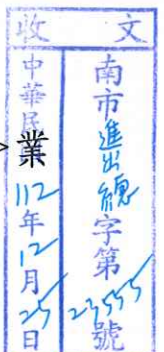 收文
南市進出總字第23555號
中華民
業
112年12月25日